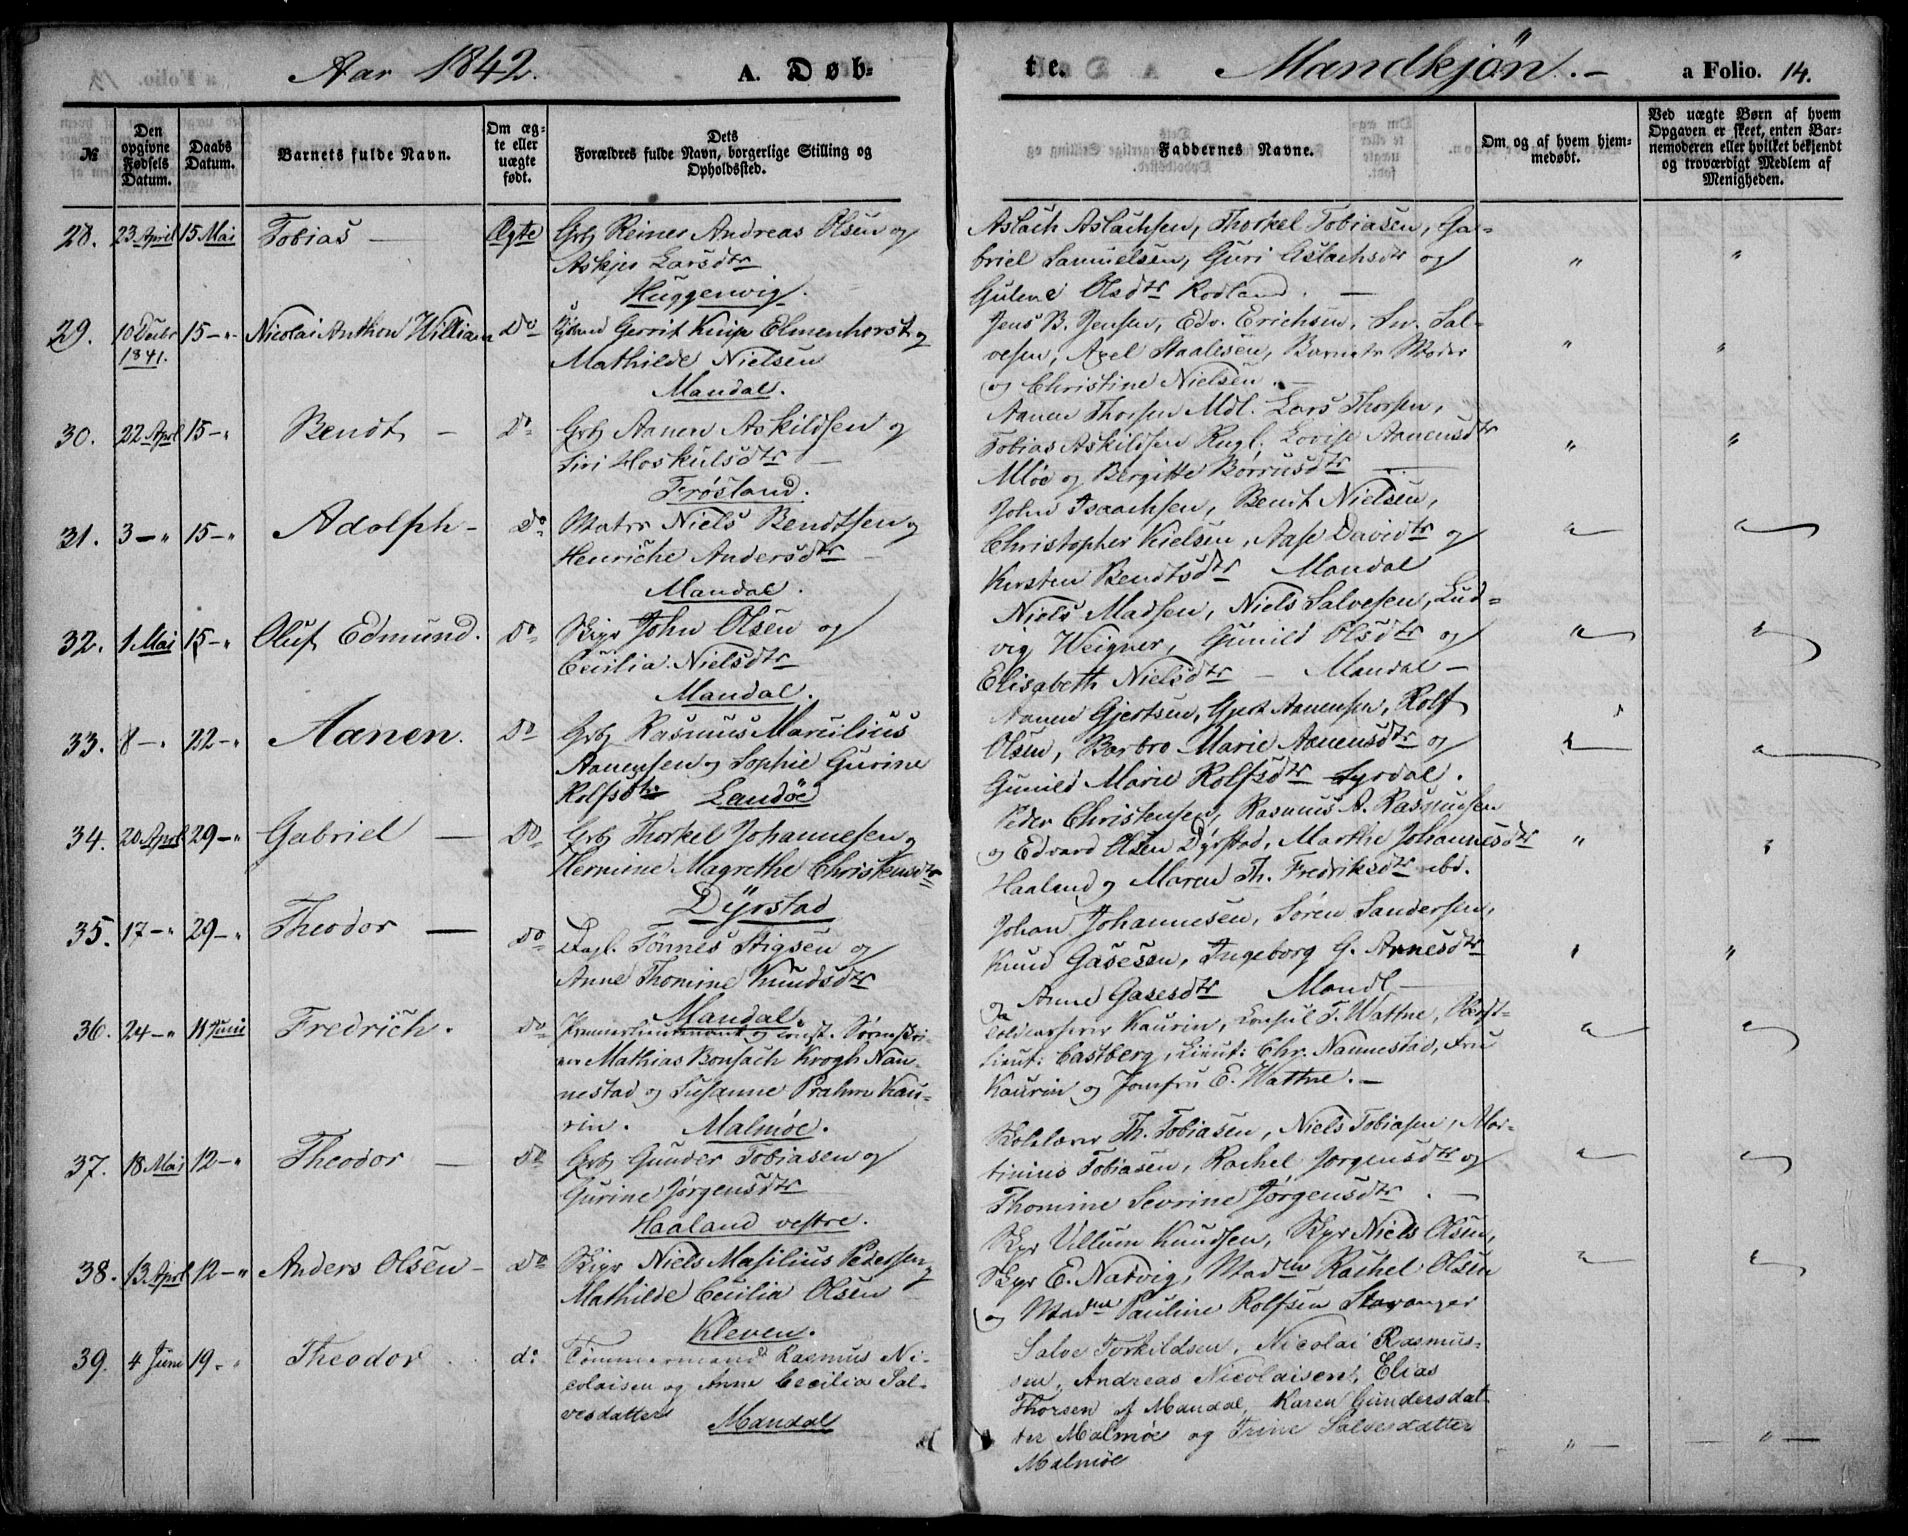 Aar 1842. A. Døb-
te. Mandkjön. - a Folio. 14.
№
Den opgivne Fødsels Datum.
Daabs Datum.
Barnets fulde Navn.
Om ægte eller uægte født.
Dets Forældres fulde Navn, borgerlige Stilling og Opholdssted.
Faddernes Navne.
Om og af hvem hjemmedøbt.
Ved uægte Børn af hvem Opgaven er skeet, enten Barnemoderen eller hvilket bekjendt og troværdigt Medlem af Menigheden.
28. 23 April 15 Mai Tobias — Ægte Grbr Reiner Andreas Olsen og
Askjer Larsdtr
Huggenvig.
Aslach Aslachsen, Thorkel Tobiasen, Ga-
briel Samuelsen, Guri Aslachsdtr og
Gulene Olsdtr Rodland. —
29. 10 Decbr 1841. 15 - " Nicolai Anthon William Do Gerrit Knip Elmenhorst og
Mathilde Nielsen
Mandal.
Jens B. Jensen, Edv. Erichsen, Sv. Sal-
vesen, Axel Staalesen, Barnets Moder
og Christine Nielsen. —
30. 22 Aprl 15 - " Bendt — Do Grbr Aanen Askildsen og
Siri Hoskulsdtr —
Frøsland.
Aanen Thorsen Mdl. Lars Thorsen,
Tobias Askildsen Rugl. Lovise Aanensdtr
Mløe og Bergitte Børrusdtr —
31. 3 - " 15 - " Adolph - Do Matrs Niels Bendtsen og
Henriche Andersdtr —
Mandal.
John Isaachsen, Bent Nielsen,
Christopher Nielsen, Aase Davidtr og
Kirsten Bendtsdtr Mandal
32. 1 Mai 15 - " Oluf Edmund. Do Skipr John Olsen og
Cecilia Nielsdtr
Mandal.
Niels Madsen, Niels Salvesen, Lud-
vig Weigner, Gunild Olsdtr og
Elisabeth Nielsdtr — Mandal —
33. 8 - " 22 - " Aanen. Do Grbr Rasmus Marcilius
Aanensen og Sophie Gurine
Rolfsdtr Landøe
Aanen Gjertsen, Gjert Aanensen, Rolf
Olsen, Barbro Marie Aanensdtr og
Gunild Marie Rolfsdtr Syrdal.
34. 20 Aprl 29 - " Gabriel — Do Grbr Thorkel Johannesen og
Hermine Magrethe Christensdtr
Dÿrstad
Peder Christensen, Rasmus A. Rasmusen
og Edvard Olsen Dyrstad, Marthe Johannesdtr
Haaland og Maren Th. Fredriksdtr ibd.
35. 17 - " 29 - " Theodor — Do Dagl. Tönnes Stigsen og
Anne Thomine Knudsdtr
Mandal
Johan Johannesen, Sören Sandersen,
Knud Gasesen, Ingeborg G. Arnesdtr
og Anne Gasesdtr Mandl —
36. 24 - " 11 Juni Fredrich. Do Premierlieutnant og const. Sorenskri-
ver Mathias Bonsach Krogh Nan-
nestad og Susanne Prahm Kau-
rin. Malmøe.
Toldcasserer Kaurin, Consul T. Wattne, Oberst-
Lieut: Castberg, Lieut: Chr. Nannestad, Fru
Kaurin og Jomfru E. Wattne. —
37. 18 Mai 12 - " Theodor — Do Grbr Gunder Tobiasen og
Gurine Jørgensdtr
Haaland vestre.
Skolelærer Th. Tobiasen, Niels Tobiasen, Mar-
tinius Tobiasen, Rachel Jørgensdtr og
Thomine Sevrine Jørgensdtr. —
38. 13 Aprl 12 - " Anders Olsen - Do Skipr Niels Masilius Pedersen og
Mathilde Cecilia Olsen
Kleven.
Skpr Villum Knudsen, Skpr Niels Olsen,
Skpr E. Natvig, Madme Rachel Olsen
og Madme Pauline Rolfsen Stavanger
39. 4 Juni 19 - " Theodor. do. Tömmermand Rasmus Ni-
colaisen og Anne Cecilia Sal-
vesdatter Mandal
Salve Torkildsen, Nicolai Rasmus-
sen, Andreas Nicolaisen, Elias
Thorsen af Mandal, Karen Gundersdat-
ter Malmöe og Trine Salvesdatter
Malmöe